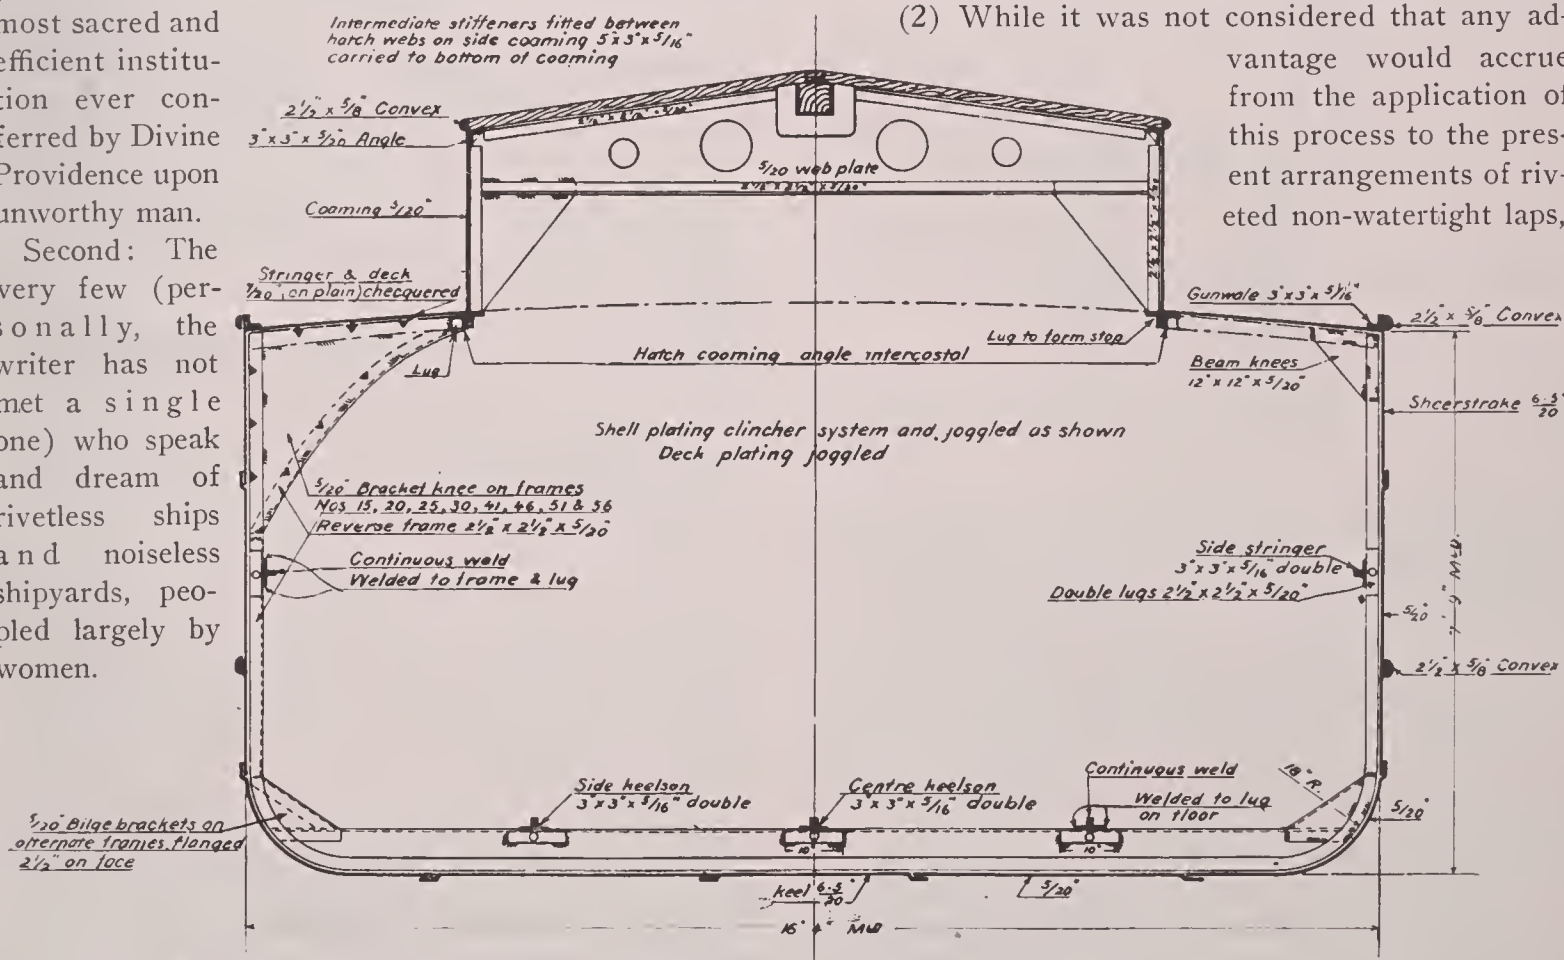 most sacred and
efficient institu-
tion ever con-
ferred by Divine
Providence upon
unworthy man.
Second: The
very few (per-
sonally, the
writer has not
met a single
one) who speak
and dream of
rivetless ships
and noiseless
shipyards, peo-
pled largely by
women.
(2) While it was not considered that any ad-
vantage would accrue
from the application of
this process to the pres-
ent arrangements of riv-
eted non-watertight laps,
Intermediate stiffeners fitted between
hatch webs on side coaming 5"x3"x5/16"
carried to bottom of coaming
2½"x 5/8" Convex
3"x3"x 5/20" Angle
Coaming 5/20"
5/20 web plate
Stringer & deck
7/20" (on plain) checquered
Lug
Hatch cooming angle intercostal
Lug to form stop
Gunwale 3"x3"x5/16"
2½"x 5/8" Convex
Beam knees
12"x 12"x 5/20"
Sheerstrake 6·5/20"
Shell plating clincher system and joggled as shown
Deck plating joggled
5/20" Bracket knee on frames
Nos 15, 20, 25, 30, 41, 46, 51 & 56
Reverse frame 2½"x 2½"x 5/20"
Continuous weld
Welded to frame & lug
Side stringer
3"x3"x5/16" double
Double lugs 2½"x2½"x5/20"
5/20"
9" M'LD.
2½"x 5/8" Convex
Side keelson
3"x3"x5/16" double
Centre keelson
3"x3"x5/16" double
Continuous weld
Welded to lug
on floor
18" R.
5/20"
5/20" Bilge brackets on
alternate frames flanged
2½" on face
10"
10"
keel 6·5/20"
5/20"
16' 4" M'LD